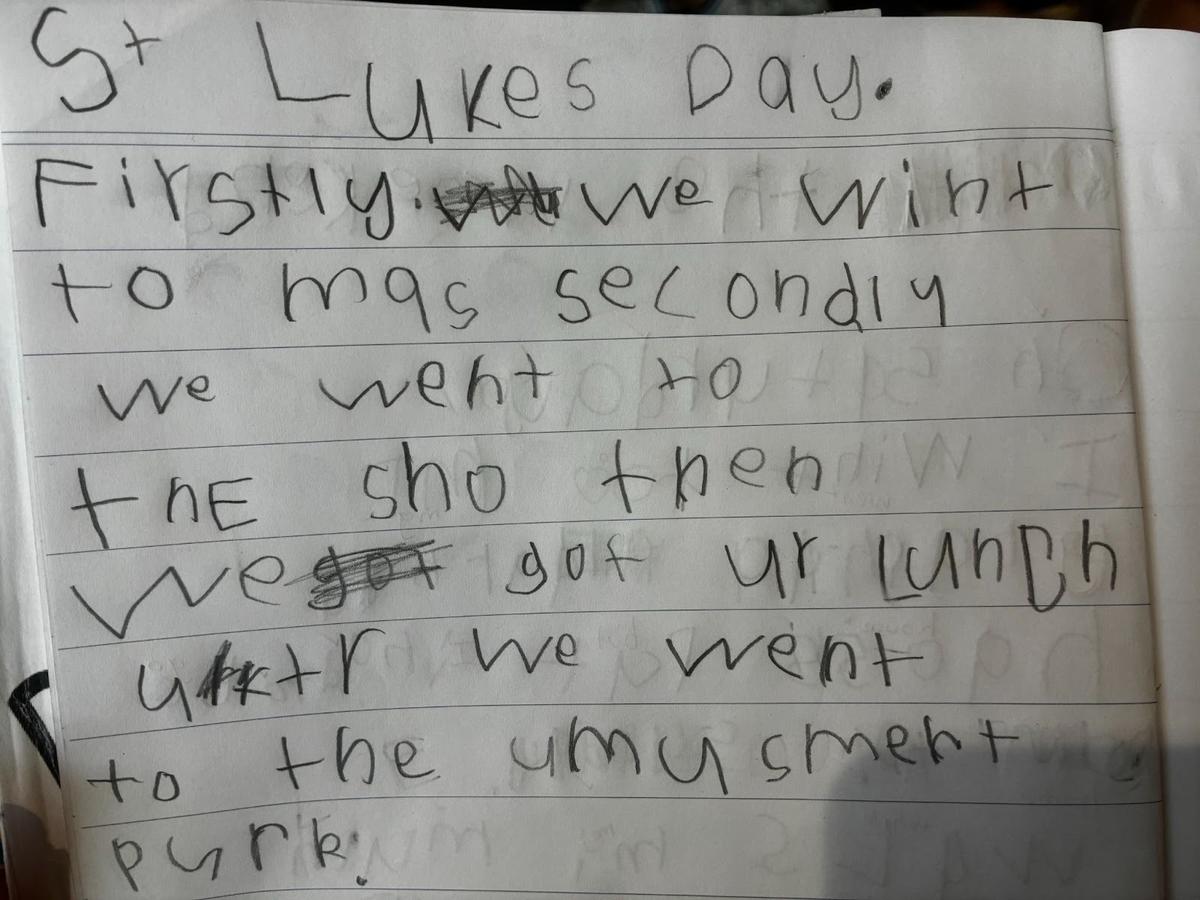 St Lukes Day.
Firstly. we wint
to mas secondly
we went to
thE sho then
we got ur Lunch
uktr we went
to the umusment
purk.